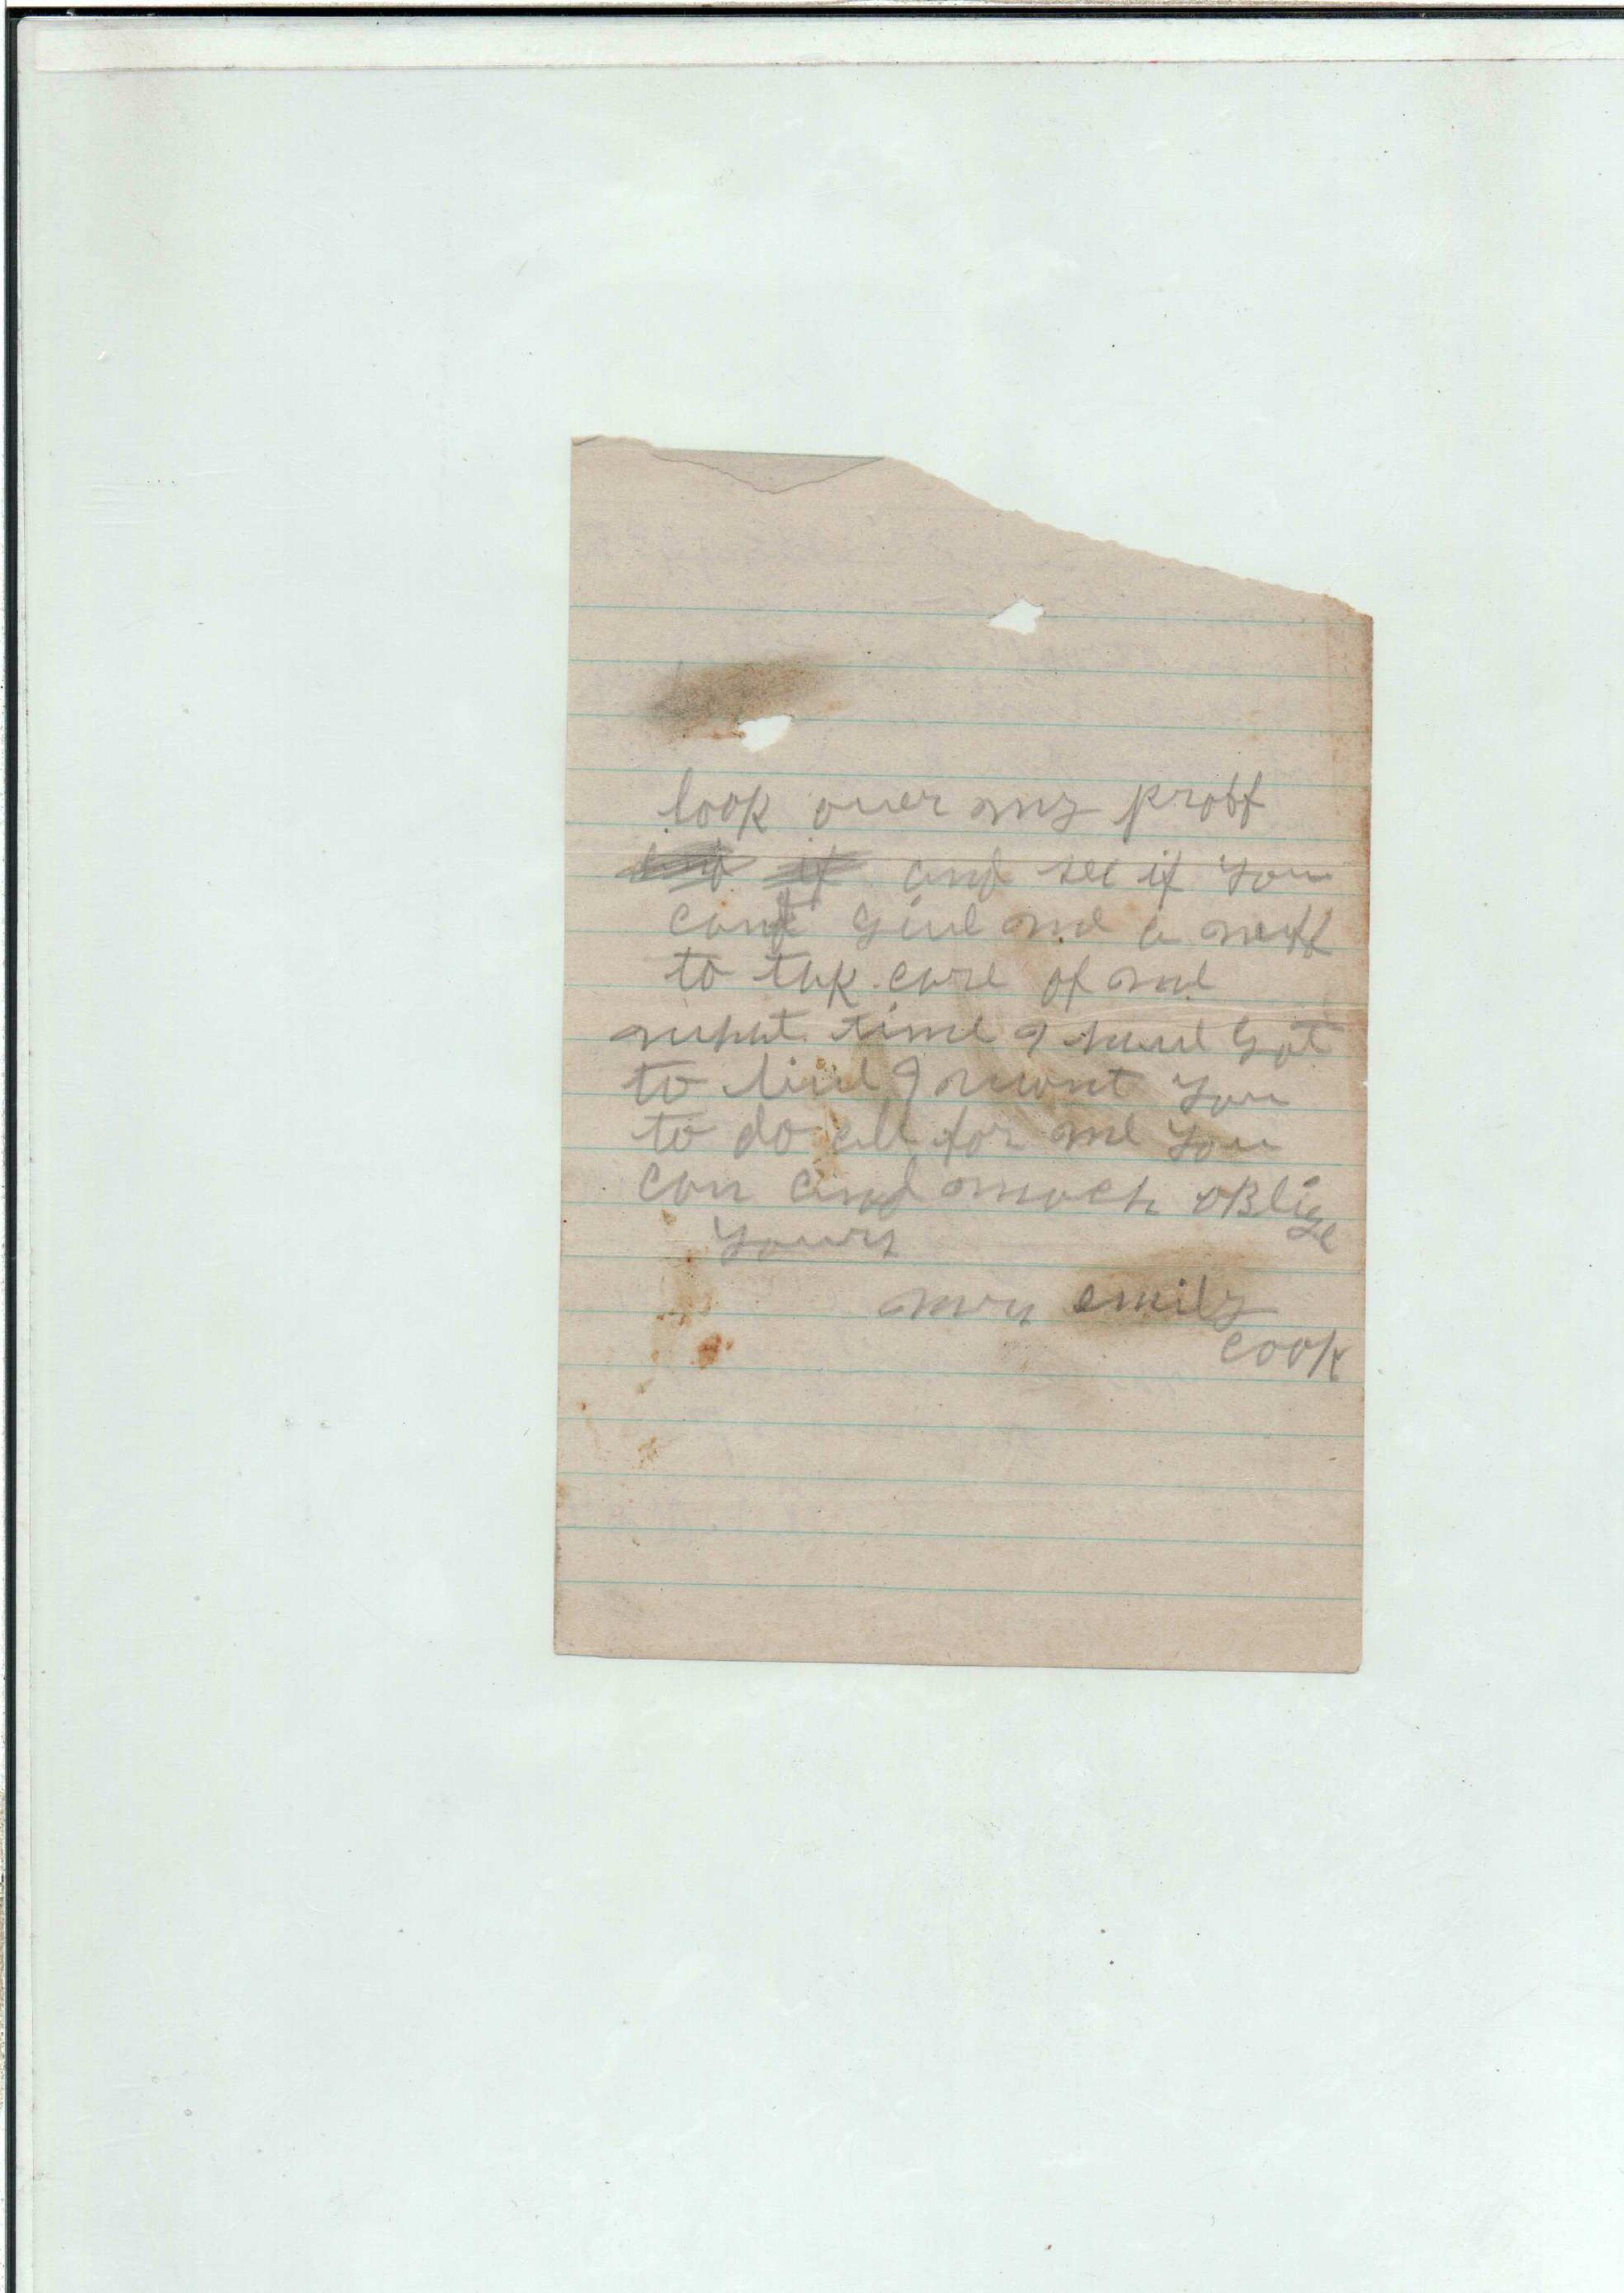 look over my proff
and see if you
cant give me a neff
to tak care of me
what time I have got
to live I want you
to do all for me you
can and moch oBlige
yours
mrs emily
cook